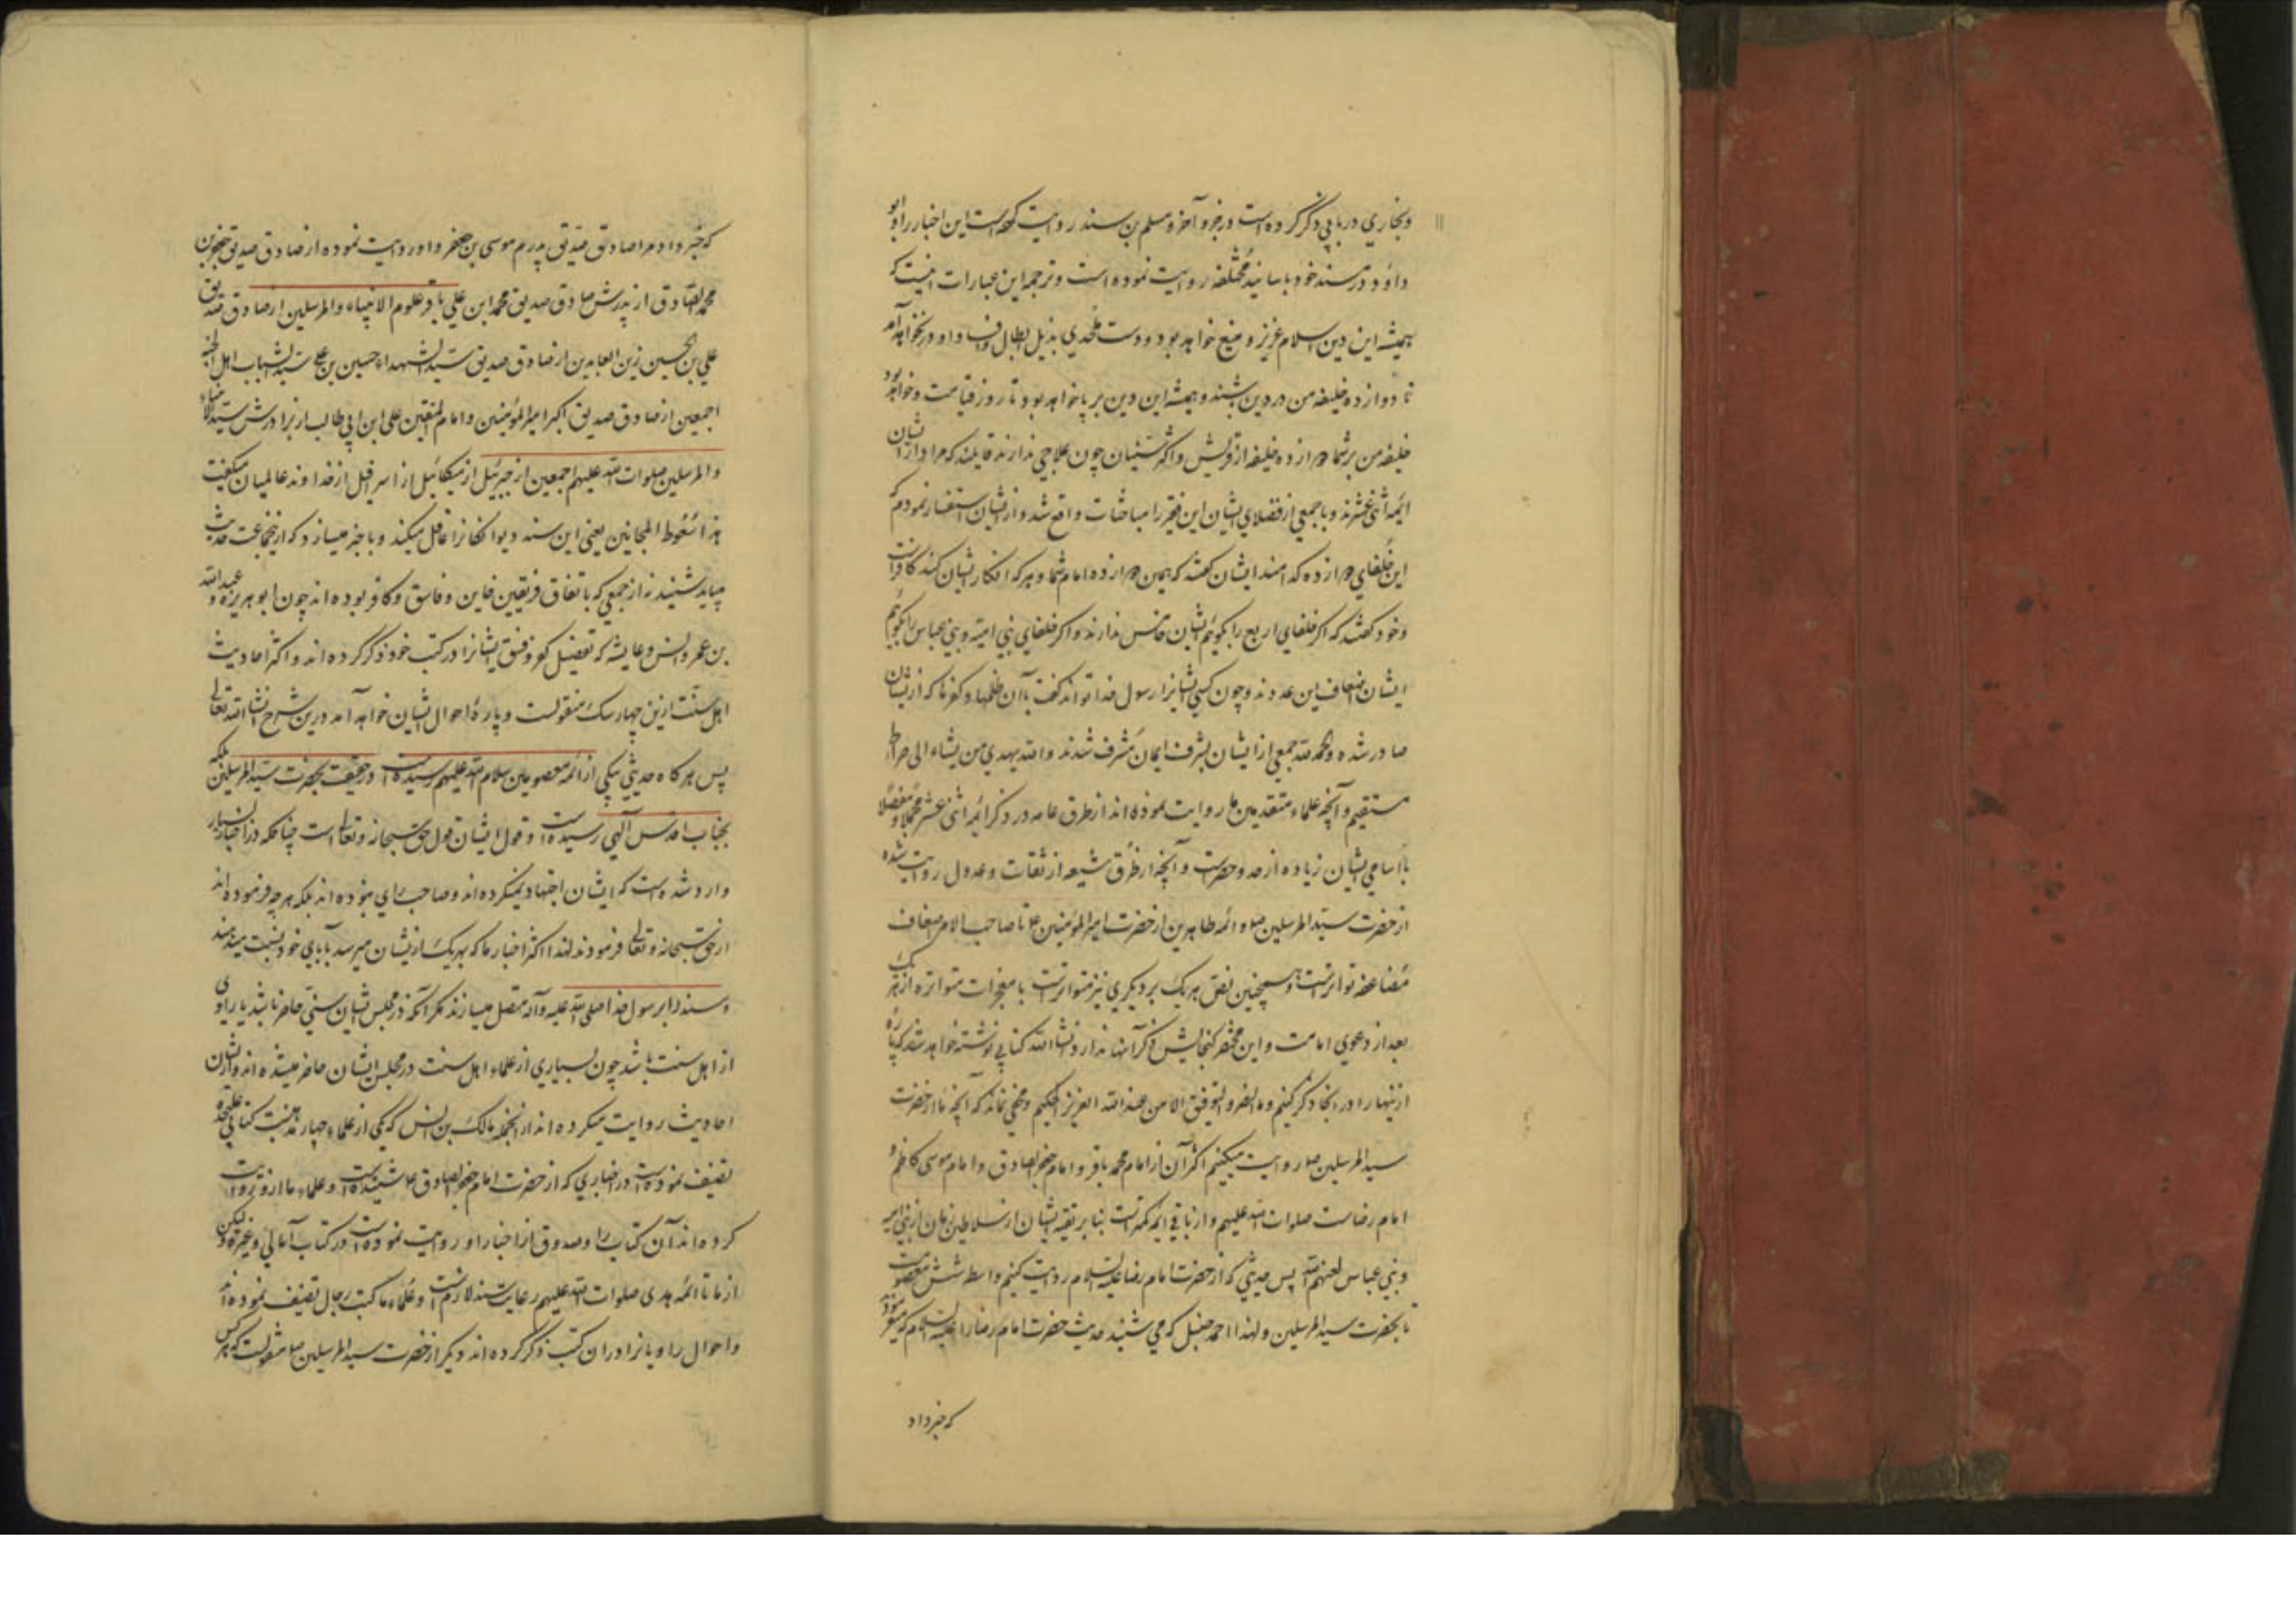 وبخاري در بابي ذكر كرده است در جزو آخر و مسلم بن سند روايت كرده است اين اخبار را و ابو
داود در مسند خود باسانيد مختلفه روايت نموده است و ترجمه اين عبارات اينست كه
هميشه اين دين اسلام عزيز و منيع خواهد بود و دست ملحدي بذيل ابطال و افساد او در نخواهد آمد
تا دوازده خليفه من در دين باشند و هميشه اين دين بر پا خواهد بود تا روز قيامت و خواهد بود
خليفه من بر شما دوازده خليفه از قريش و اكثر سنيان چون علاجي ندارند قايلند كه مراد از ايشان
ائمه اثنى عشرند و با جمعي از فضلاي ايشان اين فقير را مباحثات واقع شد و از ايشان استفسار نمودم كه
اين خلفاي دوازده كدامند ايشان گفتند كه همين دوازده امام شما و هر كه انكار ايشان كند كافر است
وخود گفتند كه اگر خلفاي اربع را بگوئيم ايشان خامس ندارند و اگر خلفاي بني اميه و بني عباس را بگوئيم
ايشان اضعاف اين عددند و چون كسي ايشانرا از رسول خدا تواند گفت با آن ظلمها و كفرها كه از ايشان
صادر شده والحمد لله جمعي از ايشان بشرف ايمان مشرف شدند والله يهدي من يشاء الى صراط
مستقيم و آنچه علماء متقدمين ما روايت نموده اند از طرق عامه در ذكر ائمه اثنى عشر مجملا و مفصلا
با اسامي ايشان زياده از حد و حصرست و آنچه از طرق شيعه از ثقات و عدول روايت شده
از حضرت سيد المرسلين صلو ائمه طاهرين از حضرت امير المؤمنين ع تا صاحب الامر مضاف
مضاعف تواترست و همچنين نص هر يك بر ديگري نيز متواترست با معجزات متواتره از هر يك
بعد از دعوي امامت و اين مختصر گنجايش ذكر آنها ندارد و انشاء الله كتابي نوشته خواهد شد كه پاره
از اينها را در آنجا ذكر كنيم وما النصر والتوفيق الا من عند الله العزيز الحكيم و مخفي نماند كه آنچه ما از حضرت
سيد المرسلين ص روايت ميكنيم اكثر آن از امام محمد باقر و امام جعفر الصادق و امام موسى كاظم و
امام رضاست صلوات الله عليهم و از باقي ائمه كمترست بنا بر تقيه ايشان از سلاطين زمان از بني اميه
وبني عباس لعنهم الله پس حديثي كه از حضرت امام رضا عليه السلام روايت كنيم واسطه شش معصومست
تا بحضرت سيد المرسلين ولهذا احمد حنبل كه مي شنيد حديث حضرت امام رضا را عليه السلام كه ميفرمودند
كه خبر داد
كه خبر داد مرا صادق صديق پدرم موسى بن جعفر و او روايت نموده از صادق صديق جعفر بن
محمد الصادق از پدرش صادق صديق محمد ابن علي باقر علوم الانبياء والمرسلين از صادق صديق
علي بن الحسين زين العابدين از صادق صديق سيد الشهداء حسين بن علي سيد الشباب اهل الجنه
اجمعين از صادق صديق اكبر امير المؤمنين وامام المتقين علي ابن ابي طالب از برادرش سيد الانبياء
والمرسلين صلوات الله عليهم اجمعين از جبرئيل از ميكائيل از اسرافيل از خداوند عالميان ميگفت
هذا سعوط المجانين يعني اين سند ديوانگانرا عاقل ميكند و با خبر ميسازد كه از چنين جماعت حديث
ميبايد شنيد نه از جمعي كه باتفاق فريقين خاين و فاسق و كافر بوده اند چون ابو هريره و عبد الله
بن عمر و انس و عايشه كه تفصيل كفر و فسق ايشانرا در كتب خود ذكر كرده اند و اكثر احاديث
اهل سنت ازين چهار سگ منقولست و پاره احوال ايشان خواهد آمد درين شرح انشاء الله تعالى
پس هر گاه حديثي بيكي از ائمه معصومين سلام الله عليهم رسيده است در حقيقت بحضرت سيد المرسلين بلكه
بجناب اقدس آلهي رسيده است و قول ايشان قول حق سبحانه وتعالى است چنانكه در اخبار بسيار
وارد شده است كه ايشان اجتهاد نميكرده اند و صاحب راي نبوده اند بلكه هر چه فرموده اند
از حق سبحانه وتعالى فرمودند لهذا اكثر اخبار ما كه بهر يك از ايشان ميرسد بآباي خود نسبت ميدهند
وسند را بر رسول خدا صلى الله عليه وآله متصل ميسازند مگر آنكه در مجلس ايشان سني حاضر نباشد يا راوي
از اهل سنت باشد چون بسياري از علماء اهل سنت در مجلس ايشان حاضر ميشده اند و از ايشان
احاديث روايت ميكرده اند از آنجمله مالك بن انس كه يكي از علماء چهار مذهبست كتابي عليحده
تصنيف نموده است در اخباري كه از حضرت امام جعفر الصادق ع شنيده است و علماء ما از او روايت
كرده اند آن كتاب را و صدوق از اخبار او روايت نموده است در كتاب آمالي و غيره و ليكن
از ما تا ائمه هدى صلوات الله عليهم رعايت سند لازمست و علماء ما كتب رجال تصنيف نموده اند
واحوال راويانرا در ان كتب ذكر كرده اند ديگر از حضرت سيد المرسلين ص منقولست كه هر كس